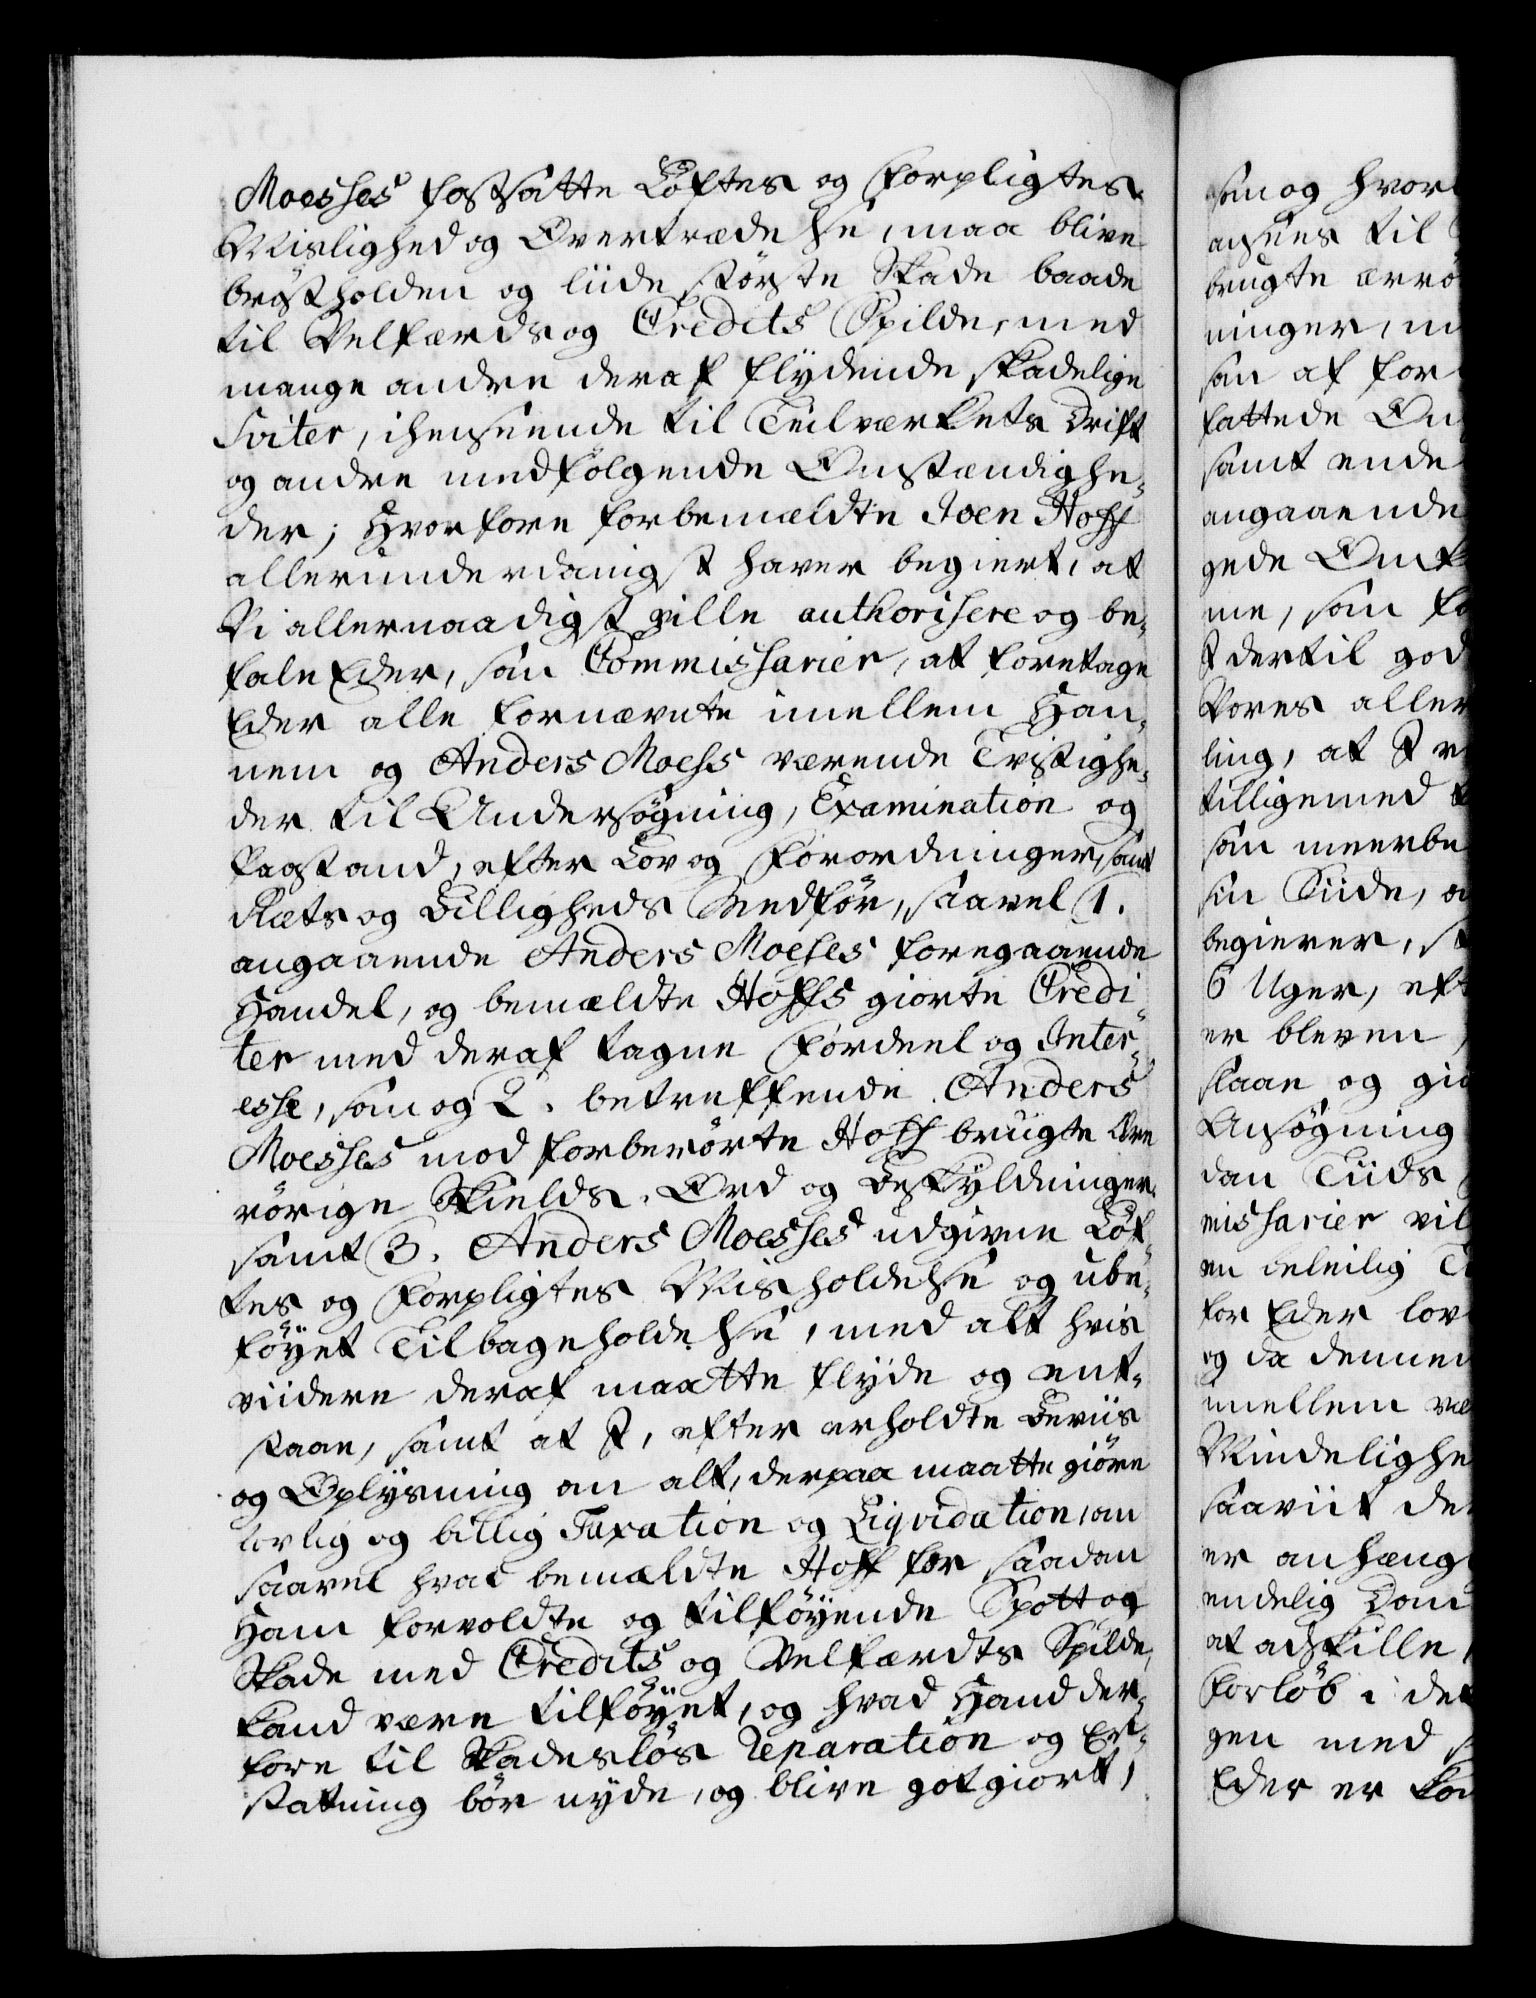 Moesses fastsatte Løftes og Forpligtes
Mislighed og Overtrædelse, maa blive
brøstholden og liide største Skade baade
til Velfærds og Credits Spilde, med
mange andre deraf flydende skadelige
Sviter, ihenseende til Teilværkets Drift
og andre medfølgende Omstændighe-
der; Hvorfore forbemældte Joen Hoff
allerunderdanigst haver begiert, at
Vi allernaadigst ville authorisere og be-
fale Eder, som Commissarier, at foretage
Eder alle fornævnte imellem Han-
nem og Anders Moess værende Tvistighe-
der til Undersøgning, Examination og
Paastand, efter Lov og Forordninger, samt
Rets og Billigheds Medfør, saavel 1.
angaaende Anders Moeses foregaaende
Handel, og bemældte Hoffs giorte Credi-
ter med deraf tagne Fordeel og Inter-
esse, som og 2. betreffende Anders
Moesses mod forberørte Hoff brugte Ære
rørige Skields-Ord og Beskyldninger
samt 3. Anders Moesses udgivne Løf-
tes og Forpligtes Misholdelse og ube-
føyet Tilbageholdelse, med alt hvis
viidere deraf maatte flyde og ent-
staae, samt at I, efter erholdte Beviis
og Oplysning om alt, derpaa maatte giøre
lovlig og billig Taxation og Liqvidation, om
saavel hvad bemældte Hoff for saadan
Ham forvoldte og tilføyende Spott og
Skade med Credits og Velfærdts Spilde,
kand være tilføyet, og hvad Hand der-
fore til Skadesløs Reparation og Er-
statning bør nyde, og blive gotgiort,
som og hvor
ansees til
brugte ærrø
ninger, m
som af for
fattede Om
samt ende
angaaende
gede Omk
me, som fo
I dertil god
Vores aller
ling, at I v
tilligemed
som meerbe
sin Siide, o
begierer, 
6 Uger, eft
er bleven
slaae og gio
Ansøgning
dan Tiids
missarier vil
en beleilig T
for Eder lov
og da dennem
imellem væ
Mindelighe
saaviit de
er anhæng
endelig Dom
at adskille
Forløb i det
gen med
Eder er kom